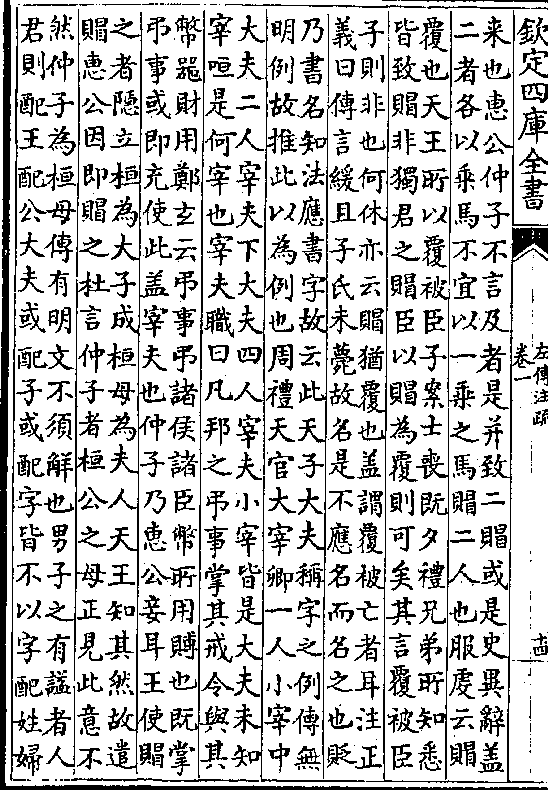 欽定四庫全書
左傳注疏
卷一
十四
来也惠公仲子不言及者是并致二賵或是史異辭盖
二者各以乗馬不宜以一乗之馬賵二人也服虔云賵
覆也天王所以覆被臣子案士喪既夕禮兄弟所知悉
皆致賵非獨君之賵臣以賵為覆則可矣其言覆被臣
子則非也何休亦云賵猶覆也盖謂覆被亡者耳注正
義曰傳言緩且子氏未薨故名是不應名而名之也貶
乃書名知法應書字故云此天子大夫稱字之例傳無
明例故推此以為例也周禮天官大宰卿一人小宰中
大夫二人宰夫下大夫四人宰夫小宰皆是大夫未知
宰咺是何宰也宰夫職曰凡邦之弔事掌其戒令與其
幣器財用鄭玄云弔事弔諸侯諸臣幣所用賻也既掌
弔事或即充使此盖宰夫也仲子乃惠公妾耳王使賵
之者隱立桓為大子成桓母為夫人天王知其然故遣
賵惠公因即賵之杜言仲子者桓公之母正見此意不
然仲子為桓母傳有明文不須解也男子之有諡者人
君則配王配公大夫或配子或配字皆不以字配姓婦